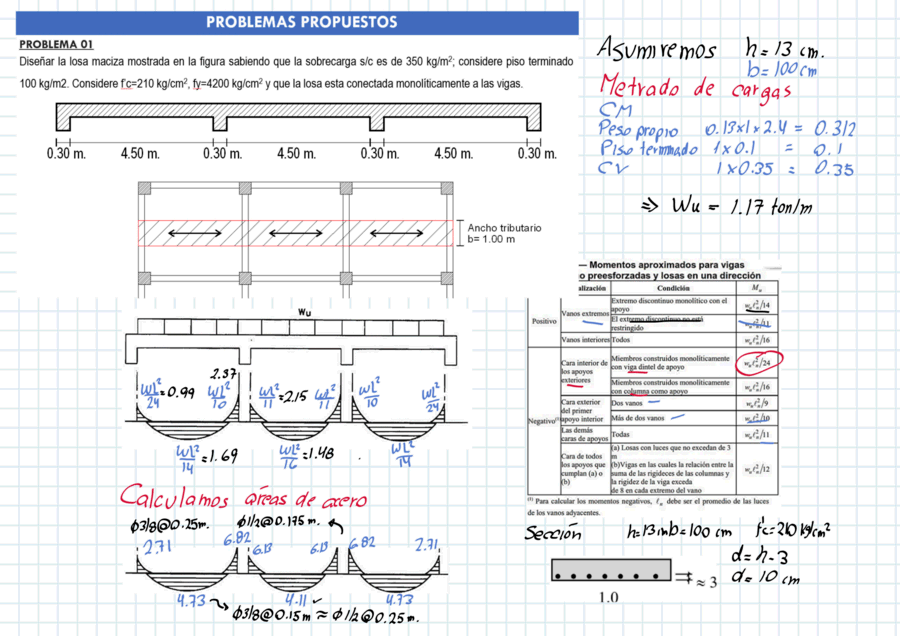 PROBLEMAS PROPUESTOS
PROBLEMA 01
Diseñar la losa maciza mostrada en la figura sabiendo que la sobrecarga s/c es de 350 kg/m²; considere piso terminado
100 kg/m2. Considere f'c=210 kg/cm², fy=4200 kg/cm² y que la losa esta conectada monolíticamente a las vigas.
0.30 m. 4.50 m. 0.30 m. 4.50 m. 0.30 m. 4.50 m. 0.30 m.
Ancho tributario
b= 1.00 m
Asumiremos h = 13 cm.
b= 100 cm
Metrado de cargas
CM
Peso propio 0.13x1x2.4 = 0.312
Piso terminado 1x0.1 = 0.1
CV 1x0.35 = 0.35
⇒ Wu = 1.17 ton/m
— Momentos aproximados para vigas
o preesforzadas y losas en una dirección
alización Condición Mu
Positivo
Vanos extremos
Extremo discontinuo monolítico con el
apoyo
wuℓn²/14
El extremo discontinuo no está
restringido
wuℓn²/11
Vanos interiores Todos wuℓn²/16
Negativo(1)
Cara interior de
los apoyos
exteriores
Miembros construidos monolíticamente
con viga dintel de apoyo
wuℓn²/24
Miembros construidos monolíticamente
con columna como apoyo
wuℓn²/16
Cara exterior
del primer
apoyo interior
Dos vanos wuℓn²/9
Más de dos vanos wuℓn²/10
Las demás
caras de apoyos
Todas wuℓn²/11
Cara de todos
los apoyos que
cumplan (a) o
(b)
(a) Losas con luces que no excedan de 3
m
(b)Vigas en las cuales la relación entre la
suma de las rigideces de las columnas y
la rigidez de la viga exceda
de 8 en cada extremo del vano
wuℓn²/12
(1) Para calcular los momentos negativos, ℓn debe ser el promedio de las luces
de los vanos adyacentes.
Wu
2.37
WL²/24 = 0.99 WL²/10 WL²/11 = 2.15 WL²/11 WL²/10 WL²/24
WL²/14 = 1.69 WL²/16 = 1.48 WL²/14
Calculamos áreas de acero
Φ3/8@0.25m. Φ1/2@0.175m.
2.71 6.82 6.13 6.13 6.82 2.71
4.73 4.11 4.73
Φ3/8@0.15m ≈ Φ1/2@0.25m.
Sección h=13 m b=100 cm f'c=210 kg/cm²
d= h-3
≈ 3 d= 10 cm
1.0